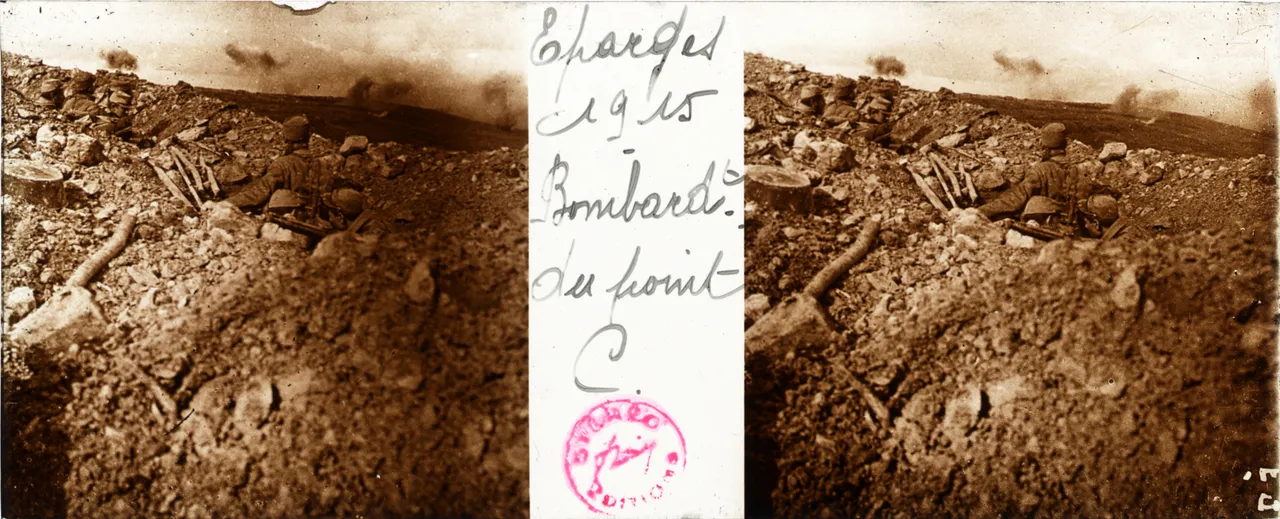 Eparges
1915
Bombardt.
du point
C.
STÉRÉO
EDITION